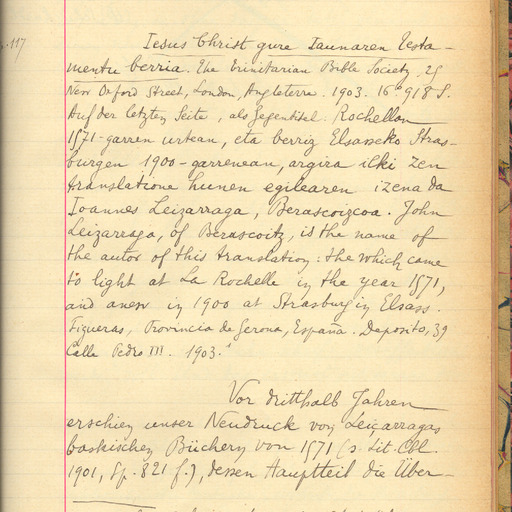 117
Iesus Christ gure Iaunaren Testa-
mentu berria. The Trinitarian Bible Society, 25
New Oxford Street, London, Angleterre. 1903. 16° 918 S.
Auf der letzten Seite, als Gegentitel: Rochellan
1571-garren urtean, eta berriz Elsasseko Stras-
burgen 1900-garrenean, argira ilki zen
translatione hunen egilearen izena da
Ioannes Leizarraga, Berascoizcoa. John
Leizarraga, of Berascoitz, is the name of
the autor of this translation: the which came
to light at La Rochelle in the year 1571,
and anew in 1900 at Strasburg in Elsass.
Figueras, Provincia de Gerona, España. Deposito, 39
Calle Pedro III. 1903.
Vor dritthalb Jahren
erschien unser Neudruck von Leiçarragas
baskischen Büchern von 1571 (s. Lit. Cbl.
1901, Sp. 821 f.), dessen Hauptteil die Über-